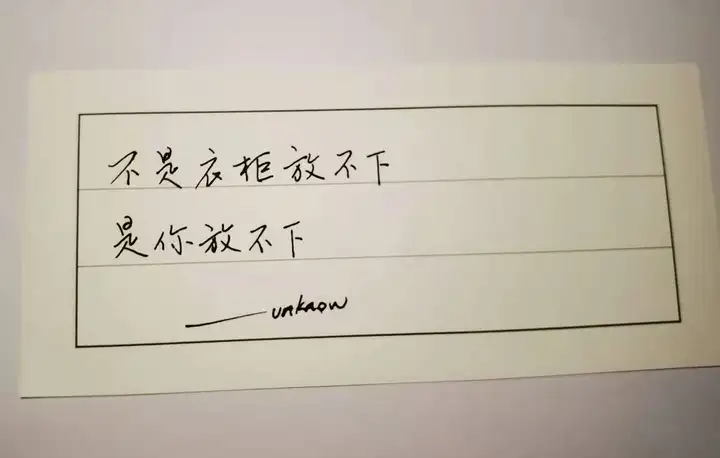 不是衣柜放不下
是你放不下
——unknow